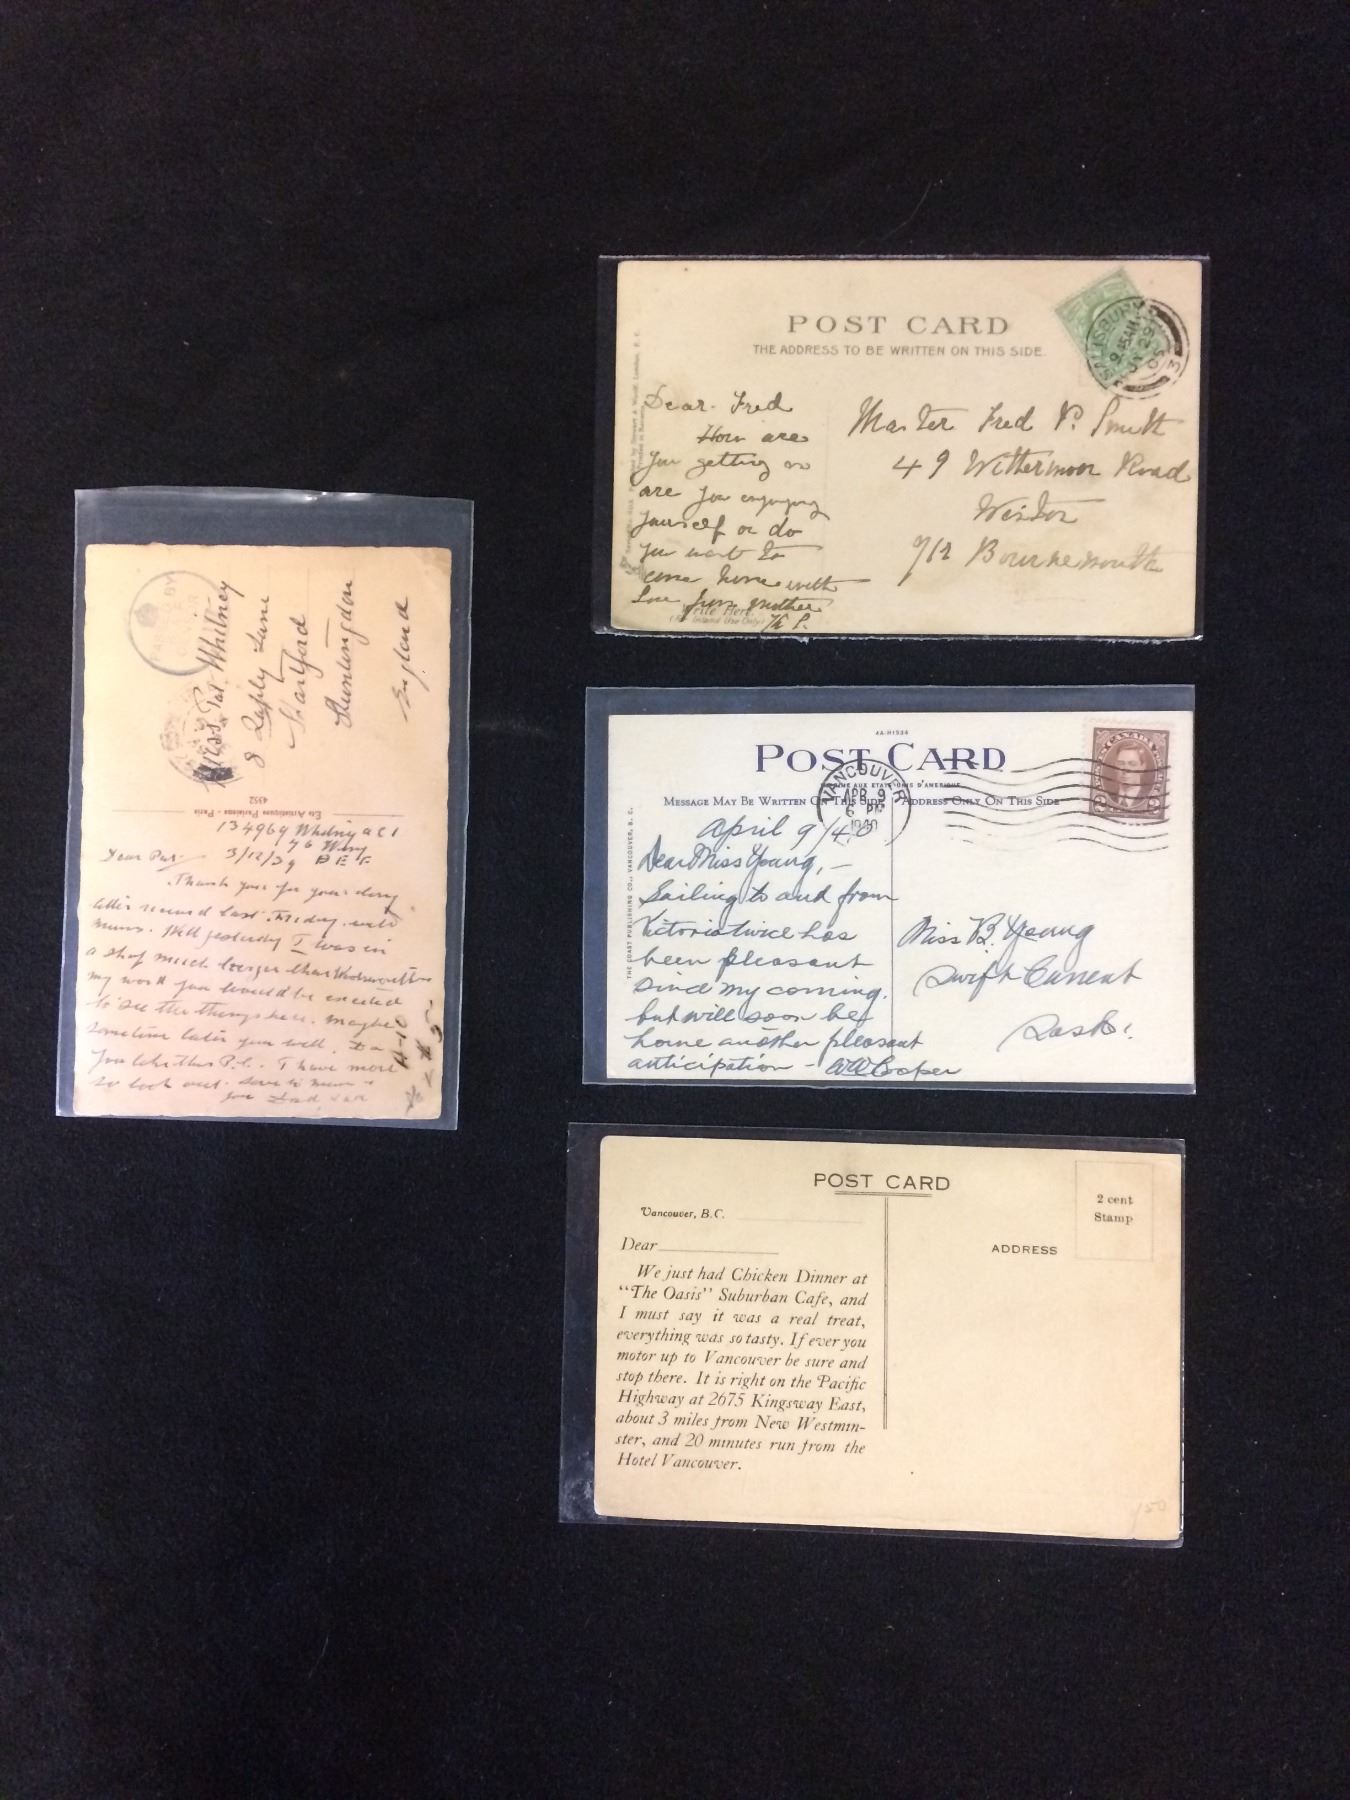 POST CARD
THE ADDRESS TO BE WRITTEN ON THIS SIDE.
SALISBURY
9 45 AM
JY 29
05
3
Dear Fred
How are
you getting on
are you enjoying
yourself or do
you want to
come home with
love from mother
Write Here.
(For Inland Use Only)
Master Fred P. Smith
49 Withermoor Road
Winton
Bournemouth
4A-H1534
POST CARD
MESSAGE MAY BE WRITTEN ON THIS SIDE
ADDRESS ONLY ON THIS SIDE
VANCOUVER
APR 9
6 PM
1940
CANADA
THE COAST PUBLISHING CO., VANCOUVER, B. C.
April 9/40
Dear Miss Young,—
Sailing to and from
Victoria twice has
been pleasant
since my coming.
but will soon be
home another pleasant
anticipation - WW Cooper
Miss B. Young
Swift Current
Sask.
POST CARD
2 cent
Stamp
Vancouver, B.C.
ADDRESS
Dear
We just had Chicken Dinner at
"The Oasis" Suburban Cafe, and
I must say it was a real treat,
everything was so tasty. If ever you
motor up to Vancouver be sure and
stop there. It is right on the Pacific
Highway at 2675 Kingsway East,
about 3 miles from New Westmin-
ster, and 20 minutes run from the
Hotel Vancouver.
150
Miss Pat Whitney
8 Lane
Hartford
Huntingdon
England
Ets Artistiques Parisiens - Paris
4952
134969 Whitney AC1
76 Wing
3/12/39 B E F
Dear Pat
Thank you for your
letter received last Friday with
mums. Well yesterday I was in
a shop much larger than Woolworths
my word you would be excited
to see the things here. maybe
sometime later you will. Do
you like this P.C. I have more
so look out. Love to mum